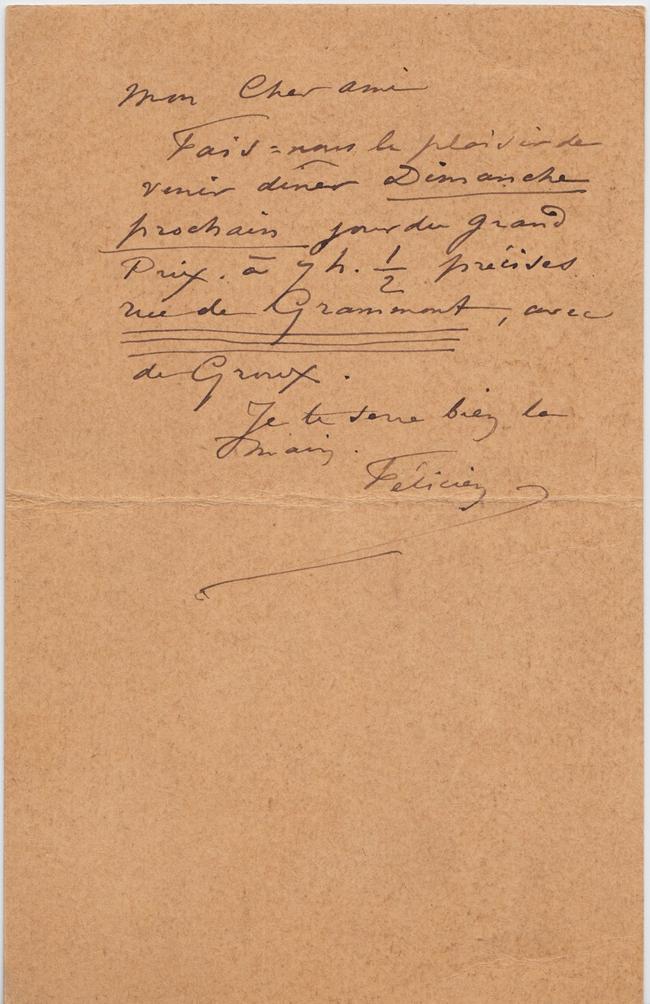 Mon Cher ami
Fais=nous le plaisir de
venir dîner Dimanche
prochain jour du grand
Prix. à 7 h. 1/2 précises
rue de Grammont, avec
de Groux.
Je te serre bien la
main.
Félicien